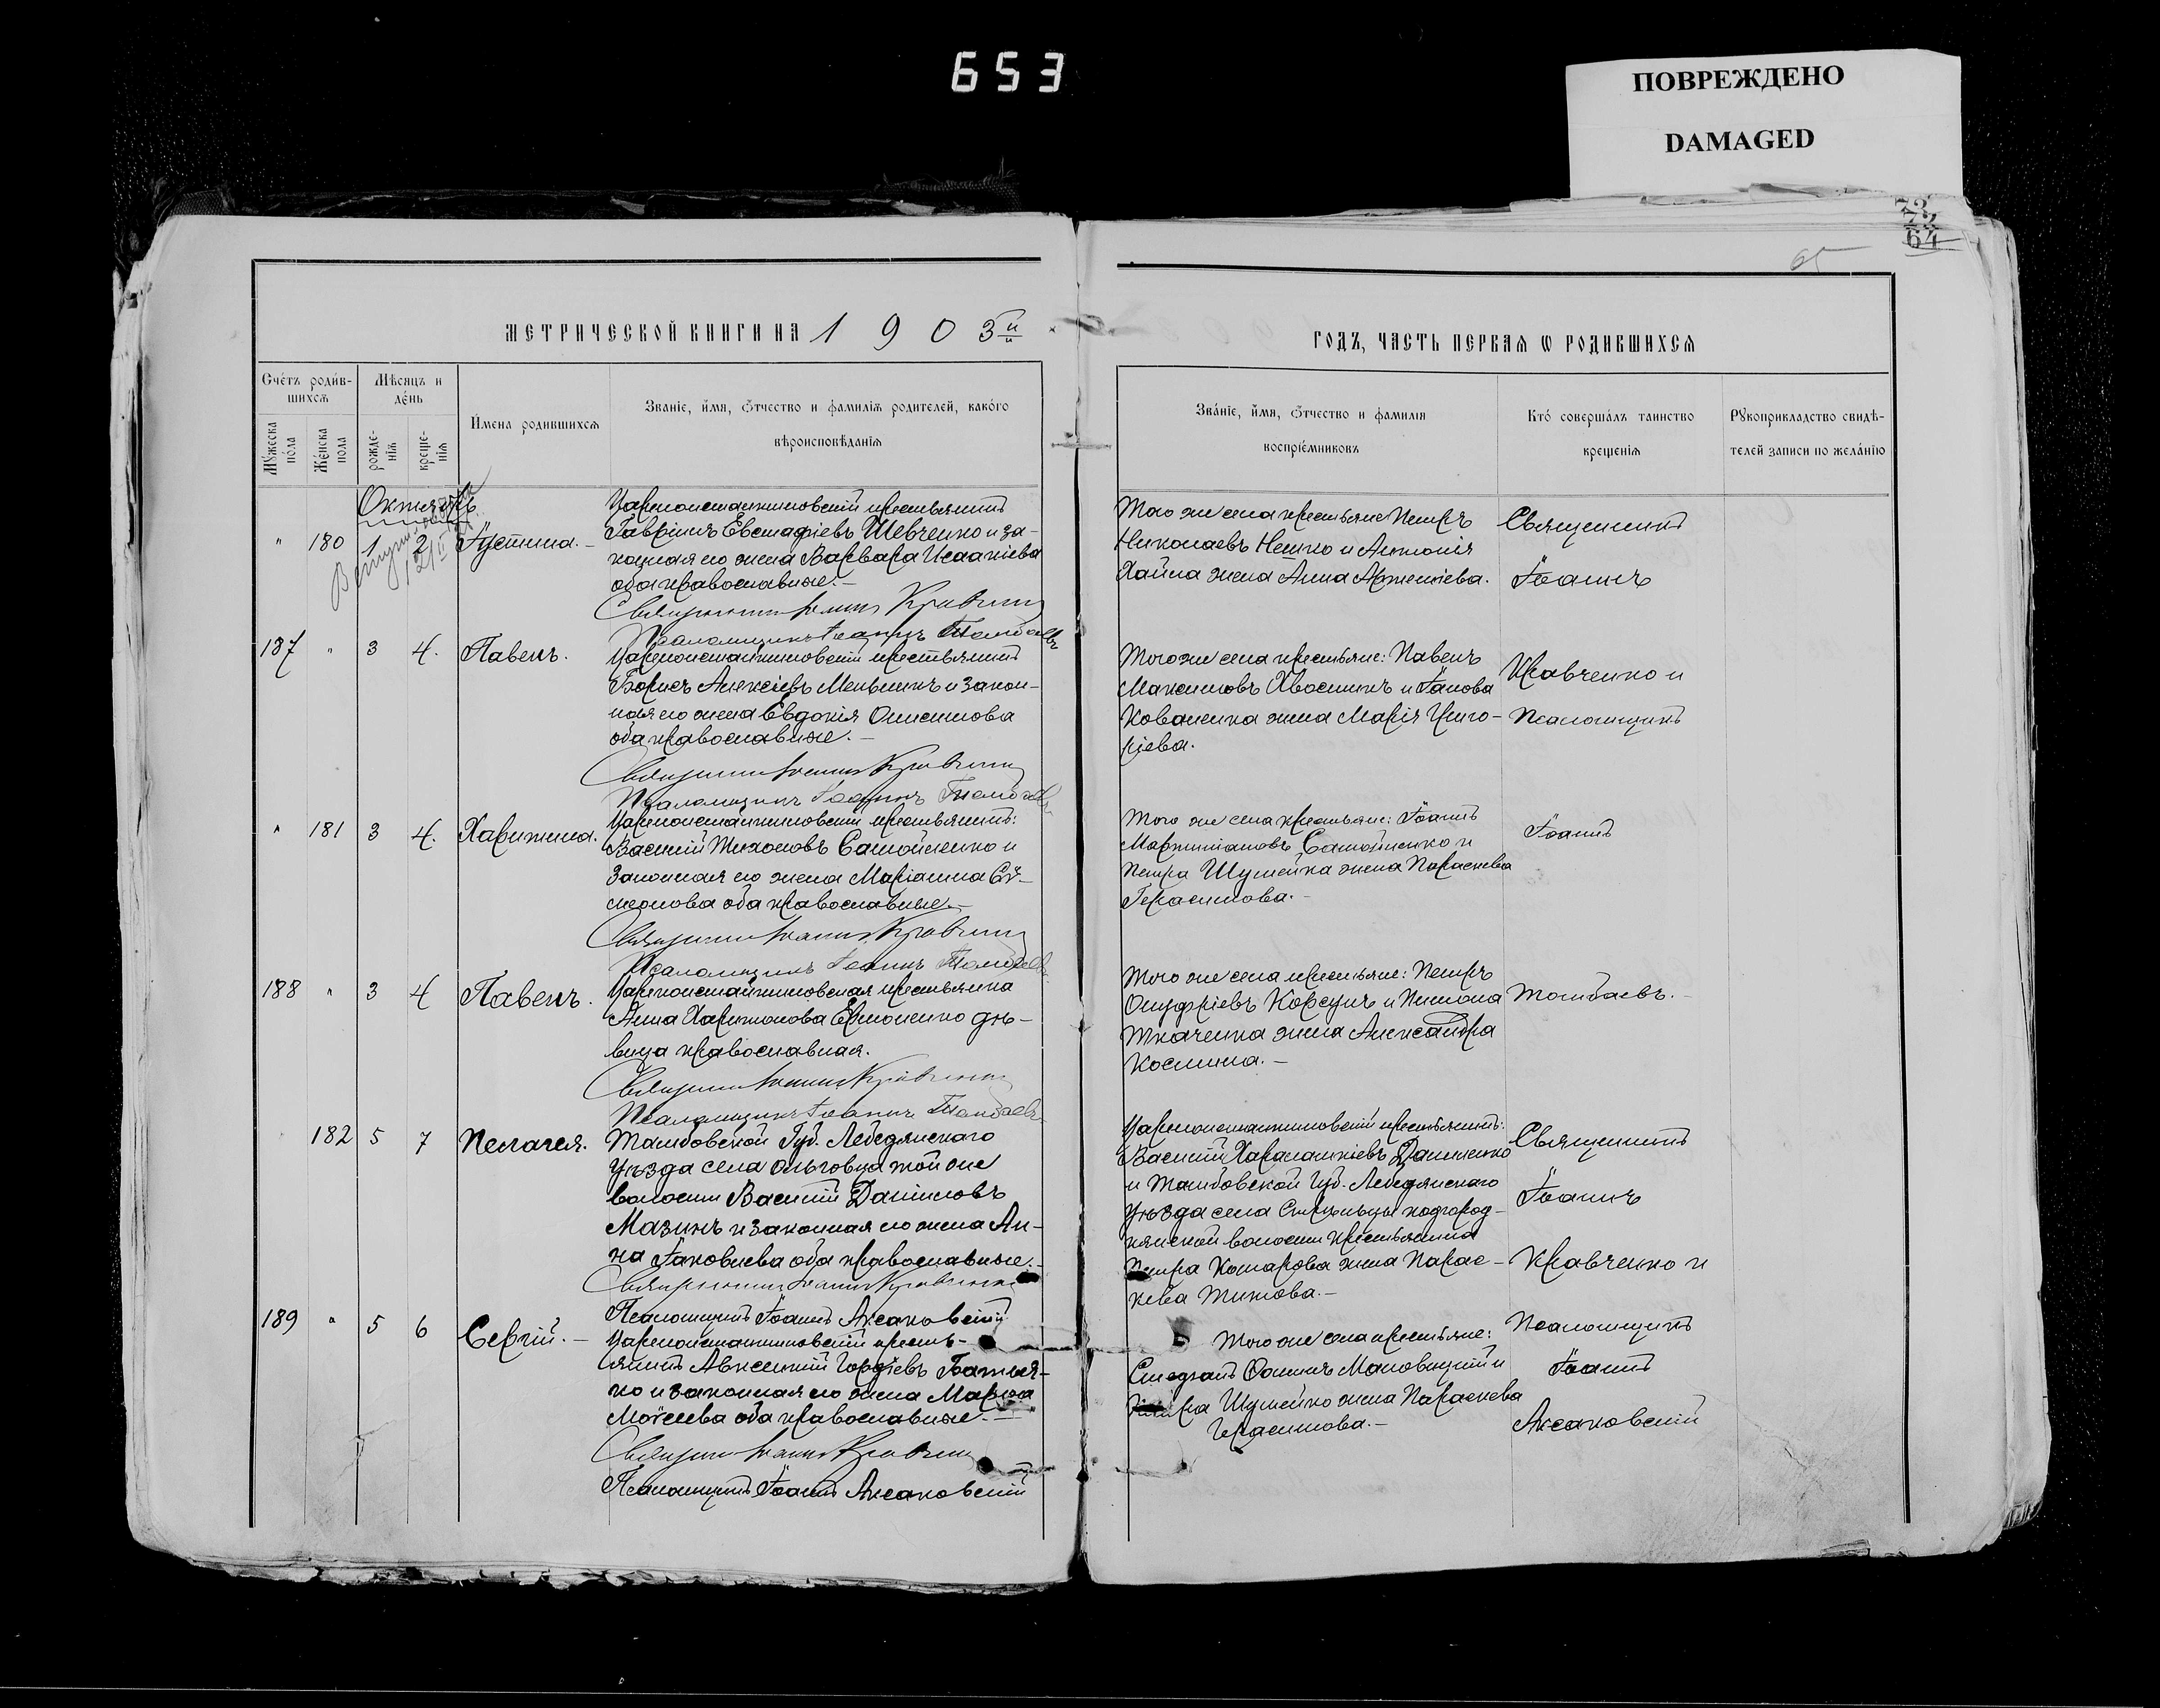 653
ПОВРЕЖДЕНО
DAMAGED
73
72
64
65
МЕТРИЧЕСКОЙ КНИГИ НА 1903й
ГОДЪ, ЧАСТЬ ПЕРВАЯ Ѡ РОДИВШИХСЯ
Счетъ родившихся
Мѣсяцъ и день
Имена родившихся
Званіе, имя, отчество и фамилія родителей, какого
вѣроисповѣданія
Мужеска пола
Женска пола
рожденія
крещенія
Званіе, имя, отчество и фамилія
воспріемниковъ
Кто совершалъ таинство
крещенія
Рукоприкладство свидѣ-
телей записи по желанію
Октябрь
" 180 1 2 Іустина.-
Царeконстантиновскій крестьянинъ
Гавріилъ Евстафіевъ Шевченко и за-
конная его жена Варвара Исаакіева
оба православные.-
Священникъ Іоаннъ Кравченко
Псаломщикъ Іоаннъ Томбаевъ
Того же села крестьяне Петръ
Николаевъ Нешко и Антонія
Хайла жена Анна Артеміева.
Священникъ
Іоаннъ
187 " 3 4. Павелъ.
Цареконстантиновскій крестьянинъ
Борисъ Алексіевъ Мельникъ и закон-
ная его жена Евдокія Онисимова
оба православные.-
Священникъ Іоаннъ Кравченко
Псаломщикъ Іоаннъ Томбаевъ
Того же села крестьяне: Павелъ
Максимовъ Хвостикъ и Іакова
Коваленка жена Марія Григо-
ріева.
Кравченко и
Псаломщикъ
" 181 3 4. Харитина.
Цареконстантиновскій крестьянинъ:
Василій Тихоновъ Самойленко и
законная его жена Маріанна Сѵ-
меонова оба православные.-
Священникъ Іоаннъ Кравченко
Псаломщикъ Іоаннъ Томбаевъ
Того же села крестьяне: Іоаннъ
Мартиніановъ Самойленко и
Петра Шумейка жена Параскева
Герасимова.-
Іоаннъ
188 " 3 4 Павелъ.
Цареконстантиновская крестьянка
Анна Харитонова Ермоленко дѣ-
вица православная.
Священникъ Іоаннъ Кравченко
Псаломщикъ Іоаннъ Томбаевъ
Того же села крестьяне: Петръ
Онуфріевъ Корсунъ и Пимона
Ткаченка жена Александра
Космина.-
Томбаевъ.-
182 5 7 Пелагея.
Тамбовской Губ. Лебедянскаго
уѣзда села Ольговца той же
волости Василій Даніиловъ
Мазинъ и законная его жена Ан-
на Іаковлева оба православные.-
Священникъ Іоаннъ Кравченко
Псаломщикъ Іоаннъ Аксаковскій
Цареконстантиновскій крестьянинъ:
Василій Харалампіевъ Даниленко
и Тамбовской Губ. Лебедянскаго
уѣзда села Стрѣльцы подгород-
нянской волости крестьянина
Петра Комарова жена Парас-
кева Титова.-
Священникъ
Іоаннъ
Кравченко и
189 " 5 6 Сергій.-
Цареконстантиновскій кресть-
янинъ Авксентій Гордіевъ Батья-
ко и законная его жена Марѳа
Моѵсеева оба православные.-
Священникъ Іоаннъ Кравченко
Псаломщикъ Іоаннъ Аксаковскій
Того же села крестьяне:
Стефанъ Маловицкій и
Петра Шумейко жена Параскева
Герасимова.-
Псаломщикъ
Іоаннъ
Аксаковскій